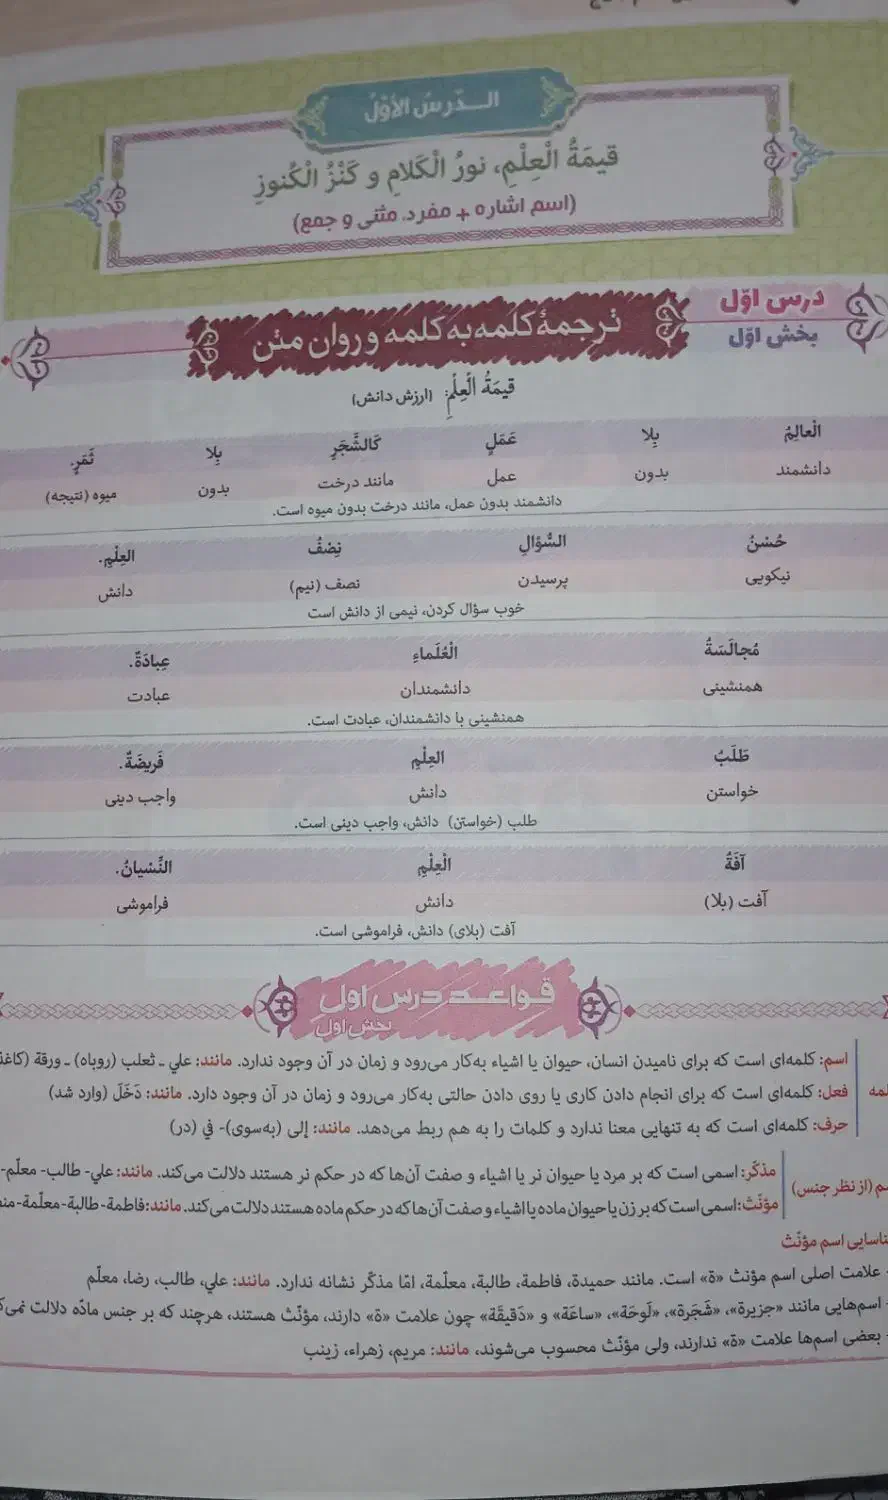 الـدّرسُ الأوّلُ
قيمَةُ الْعِلْمِ، نورُ الْكَلامِ و كَنْزُ الْكُنوزِ
(اسم اشاره + مفرد، مثنی و جمع)
درس اوّل
بخش اوّل
ترجمهٔ کلمه به کلمه و روان متن
قيمَةُ الْعِلْمِ: (ارزش دانش)
الْعالِمُ بِلا عَمَلٍ كَالشَّجَرِ بِلا ثَمَرٍ.
دانشمند بدون عمل مانند درخت بدون میوه (نتیجه)
دانشمند بدون عمل، مانند درخت بدون میوه است.
حُسْنُ السُّؤالِ نِصْفُ العِلْمِ.
نیکویی پرسیدن نصف (نیم) دانش
خوب سؤال کردن، نیمی از دانش است
مُجالَسَةُ الْعُلَماءِ عِبادَةٌ.
همنشینی دانشمندان عبادت
همنشینی با دانشمندان، عبادت است.
طَلَبُ العِلْمِ فَريضَةٌ.
خواستن دانش واجب دینی
طلب (خواستن) دانش، واجب دینی است.
آفَةُ الْعِلْمِ النِّسْيانُ.
آفت (بلا) دانش فراموشی
آفت (بلای) دانش، فراموشی است.
قواعـد درس اول
بخش اول
اسم: کلمه‌ای است که برای نامیدن انسان، حیوان یا اشیاء به‌کار می‌رود و زمان در آن وجود ندارد. مانند: علي ـ ثعلب (روباه) ـ ورقة
فعل: کلمه‌ای است که برای انجام دادن کاری یا روی دادن حالتی به‌کار می‌رود و زمان در آن وجود دارد. مانند: دَخَلَ (وارد شد)
حرف: کلمه‌ای است که به تنهایی معنا ندارد و کلمات را به هم ربط می‌دهد. مانند: إلی (به‌سوی)- في (در)
(از نظر جنس) مذکّر: اسمی است که بر مرد یا حیوان نر یا اشیاء و صفت آن‌ها که در حکم نر هستند دلالت می‌کند. مانند: علي- طالب- معلّم-
مؤنّث: اسمی است که بر زن یا حیوان ماده یا اشیاء و صفت آن‌ها که در حکم ماده هستند دلالت می‌کند. مانند: فاطمة- طالبة- معلّمة-
اسم مؤنّث
- علامت اصلی اسم مؤنث «ة» است. مانند حمیدة، فاطمة، طالبة، معلّمة، امّا مذکّر نشانه ندارد. مانند: علي، طالب، رضا، معلّم
- اسم‌هایی مانند «جزیرة»، «شَجَرة»، «لَوحَة»، «ساعَة» و «دَقیقَة» چون علامت «ة» دارند، مؤنّث هستند، هرچند که بر جنس مادّه دلالت
- بعضی اسم‌ها علامت «ة» ندارند، ولی مؤنّث محسوب می‌شوند، مانند: مریم، زهراء، زینب